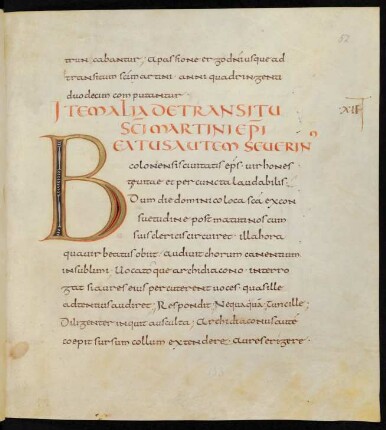 52
trun cabantur; A passione ergo dni usque ad
transitum sci martini anni quadringenti
duodecim computantur
ITEM ALIA DE TRANSITU
XII
SCI MARTINI EPI
BEATUS AUTEM SEUERINus
coloniensis ciuitatis eps uir hones
tę uitae et per cuncta laudabilis.
Dum die dominico loca sca ex con
suetudine post matutinos cum
suis clericis circuiret illa hora
qua uir beatus obiit. audiuit chorum canentium
in sublimi. Uocatoque archidiacono. interro
gat si aures eius percuterent uoces quas ille
adtentus audiret; Respondit. Nequaquā. Tunc ille;
Diligenter inquit ausculta; Archidiaconus autē
coepit sursum collum extendere. aures erigere.